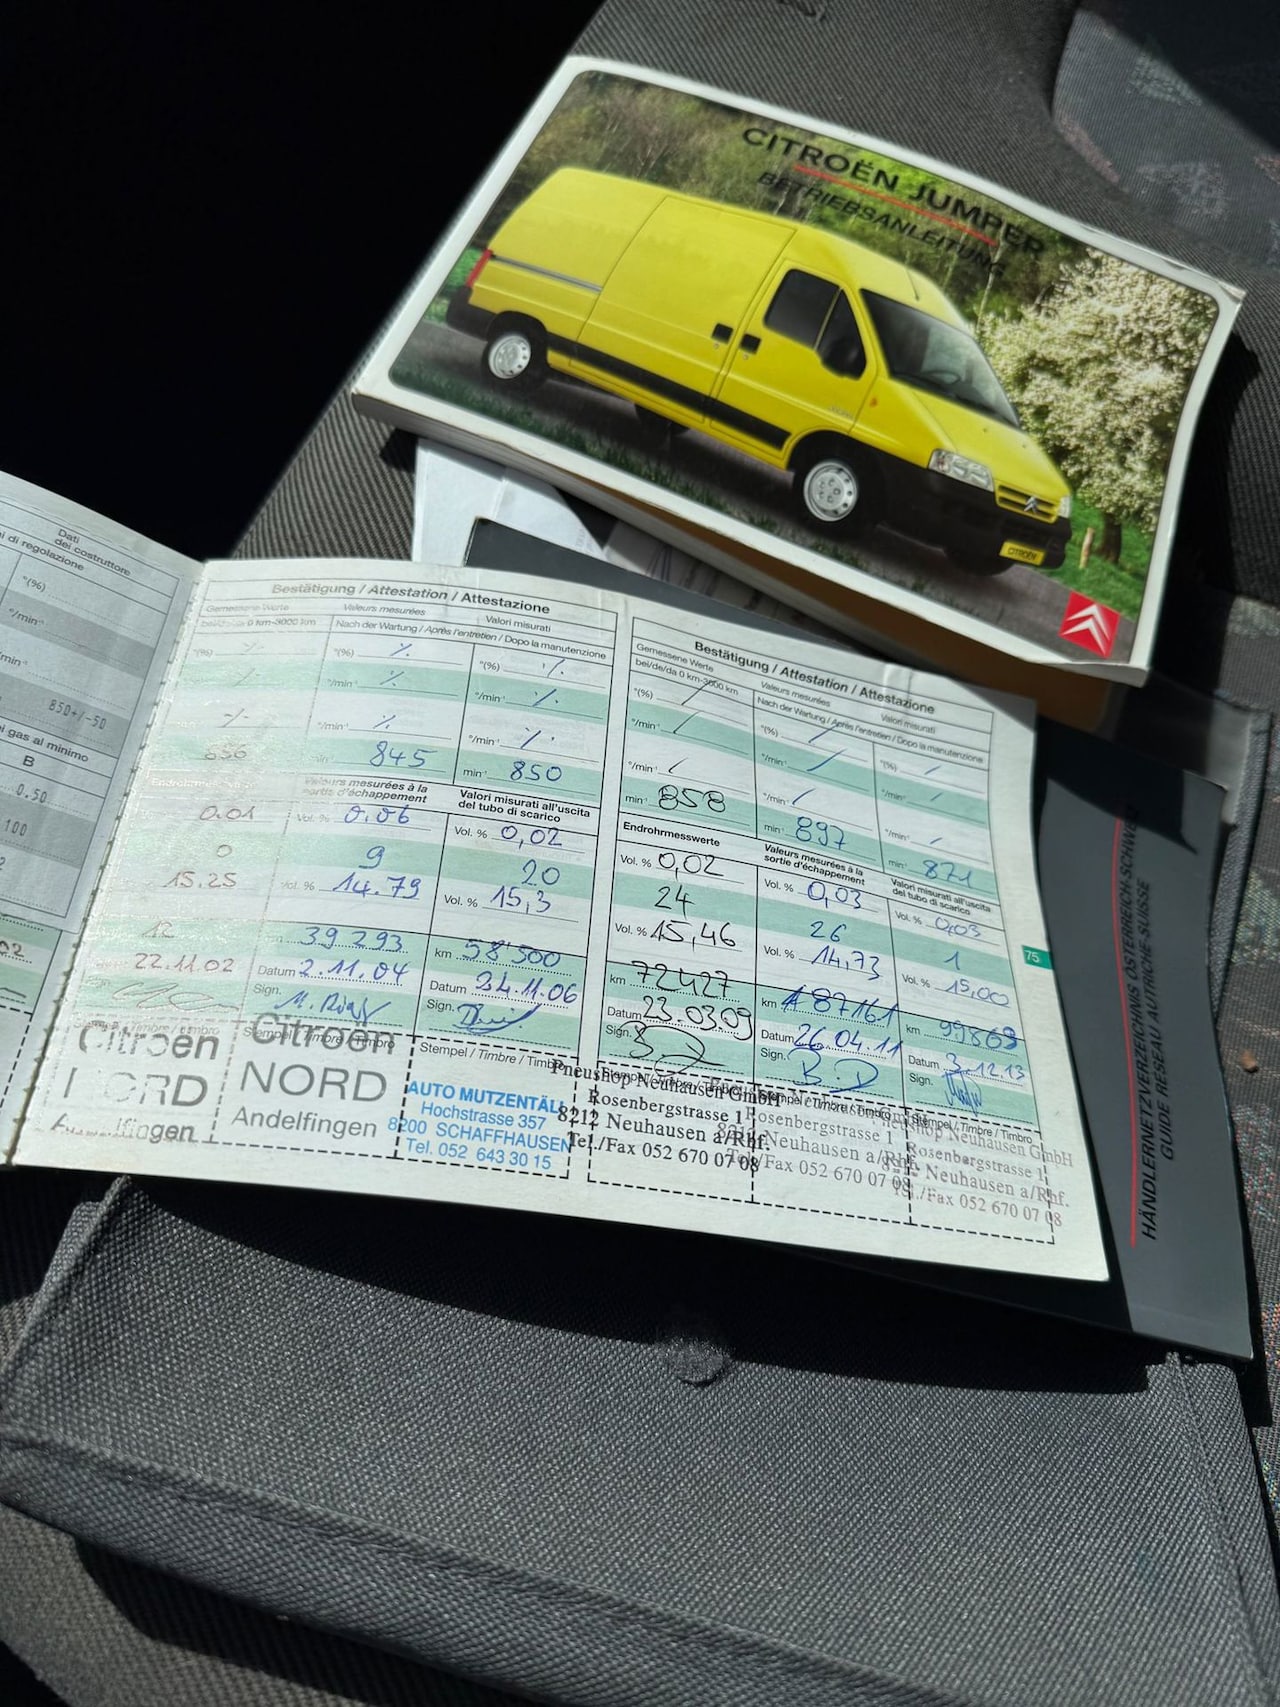 CITROËN JUMPER
BETRIEBSANLEITUNG
CITROËN
Dati
dei costruttore
i di regolazione
°(%)
°/min⁻¹
850+/-50
i gas al minimo
B
0.50
100
Bestätigung / Attestation / Attestazione
Gemessene Werte Valeurs mesurées Valori misurati
bei/de/da 0 km-3000 km Nach der Wartung / Après l'entretien / Dopo la manutenzione
°(%) °(%) °(%)
°/min⁻¹ °/min⁻¹
°/min⁻¹
845 min⁻¹ 850
Valeurs mesurées à la
sortie d'échappement
Valori misurati all'uscita
del tubo di scarico
0.01 Vol. % 0,06 Vol. % 0,02
0 9 20
15.25 Vol. % 14.79 Vol. % 15,3
12 39 293 km 58'500
22.11.02 Datum 2.11.04 Datum 24.11.06
Sign. Sign.
Stempel / Timbre / timbro Stempel / Timbre / Timbro Stempel / Timbre / Timbro
Citroën
NORD
Andelfingen
Citroën
NORD
Andelfingen
AUTO MUTZENTÄL
Hochstrasse 357
8200 SCHAFFHAUSEN
Tel. 052 643 30 15
Bestätigung / Attestation / Attestazione
Gemessene Werte Valeurs mesurées Valori misurati
bei/de/da 0 km-3000 km Nach der Wartung / Après l'entretien / Dopo la manutenzione
°(%) °(%) °(%)
°/min⁻¹ °/min⁻¹ °/min⁻¹
°/min⁻¹ °/min⁻¹ °/min⁻¹
min⁻¹ 858 min⁻¹ 897 min⁻¹ 871
Endrohrmesswerte
Valeurs mesurées à la
sortie d'échappement
Valori misurati all'uscita
del tubo di scarico
Vol. % 0,02 Vol. % 0,03 Vol. % 0,03
24 26 1
Vol. % 15,46 Vol. % 14,73 Vol. % 15,00
km 72427 km 87161 km 99869
Datum 23.03.09 Datum 26.04.11 Datum 3.12.13
Sign. Sign. Sign.
Stempel / Timbre / Timbro Stempel / Timbre / Timbro Stempel / Timbre / Timbro
Pneushop Neuhausen GmbH
Rosenbergstrasse 1
8212 Neuhausen a/Rhf.
Tel./Fax 052 670 07 08
Pneushop Neuhausen GmbH
Rosenbergstrasse 1
8212 Neuhausen a/Rhf.
Tel./Fax 052 670 07 08
Pneushop Neuhausen GmbH
Rosenbergstrasse 1
8212 Neuhausen a/Rhf.
Tel./Fax 052 670 07 08
75
HÄNDLERNETZVERZEICHNIS ÖSTERREICH-SCHWEIZ
GUIDE RESEAU AUTRICHE-SUISSE